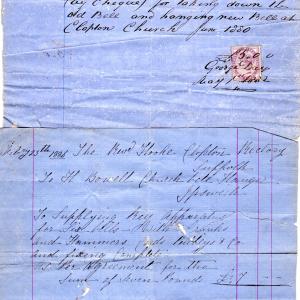 (by Cheque) for taking down the
old Bell and hanging new Bell at
Clopton Church June 1880
George Day
May 1
The Revd Hooke Clopton Rectory
Suffolk
To H Bowell Church Bells Hanger
Ipswich
To Supplying Key Apparatus
for Six Bells With Cranks
and Hammers Cords Pulleys & Co
and fixing Complete
as Per Agreement for the
Sum of Seven Pounds £7